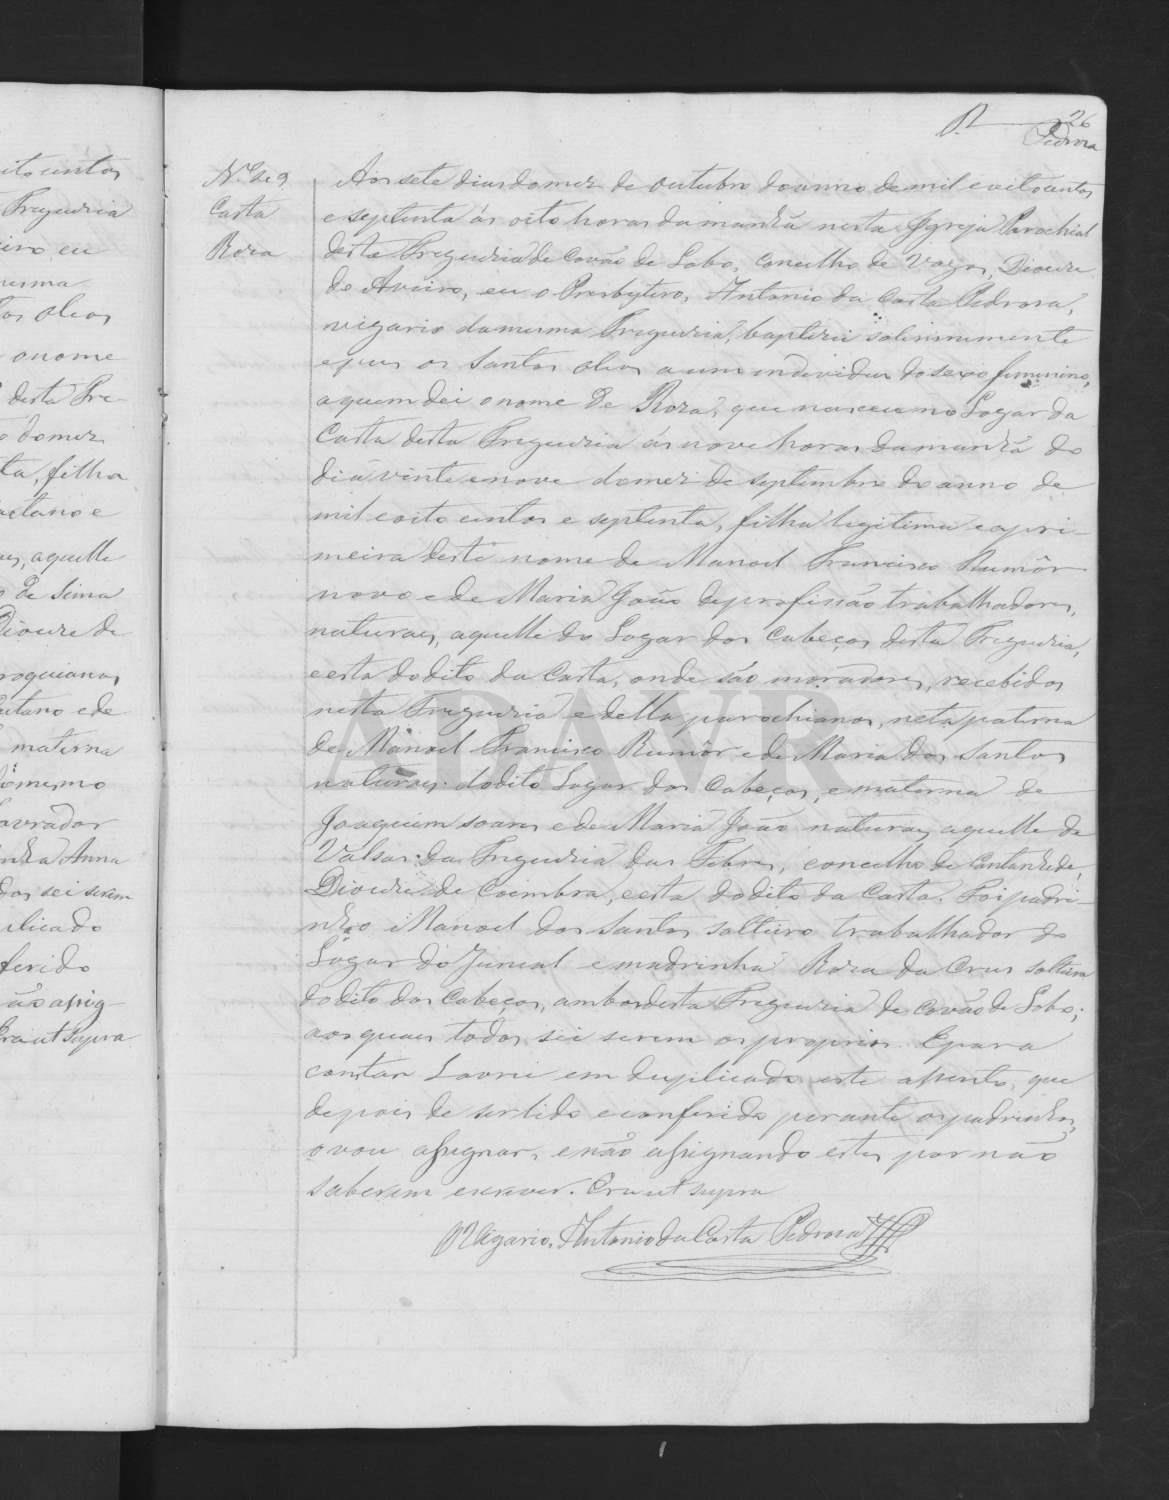 26
Pedroza
N.º 49
Costa
Roza
Aos sete dias do mez de outubro do anno de mil e oitocentos
e septenta ás oito horas da manhã nesta Igreja Parochial
desta Freguezia de Covão de Lobo, concelho de Vagos, Diocese
de Aveiro, eu o Presbytero, Antonio da Costa Pedroza,
vigario da mesma Freguezia, baptizei solemnemente
e puz os Santos oleos a um individuo do sexo femenino,
a quem dei o nome de Roza, que nasceu no Logar da
Costa desta Freguezia ás nove horas da manhã do
dia vinte e nove do mez de septembro do anno de
mil e oito centos e septenta, filha legitima e pri-
meira deste nome de Manoel Francisco Rumôr
novo e de Maria João de profissão trabalhadores,
naturaes, aquelle do Logar dos Cabeços desta Freguezia,
e esta do dito da Costa, onde são moradores, recebidos
nesta Freguezia e della parochianos, neta paterna
de Manoel Francisco Rumôr e de Maria dos Santos
naturaes do dito Logar dos Cabeços, e materna de
Joaquim Soares e de Maria João naturaes aquelle de
Valsas da Freguezia das Febres, concelho de Cantanhede,
Diocese de Coimbra, e esta do dito da Costa. Foi padri-
nho Manoel dos Santos solteiro trabalhador do
Logar do Juncal e madrinha Roza da Cruz solteira
do dito dos Cabeços, ambos desta Freguezia de Covão de Lobo;
aos quaes todos sei serem os proprios. E para
constar Lavrei em duplicado este assento, que
depois de ser lido e conferido perante os padrinhos,
o vou assignar, e não assignando estes por não
saberem escrever. Era ut supra
O Vigario, Antonio da Costa Pedroza
ito centos
Freguezia
eiro, eu
mesma
tos oleos
o nome
desta Fre-
do mez
ta, filha
aetano e
es, aquelle
de Sima
Diocese de
roquianos
aetano e de
materna
o mesmo
avrador
nha Anna
dos sei serem
plicado
ferido
ão assig-
Era ut supra
ADAVR